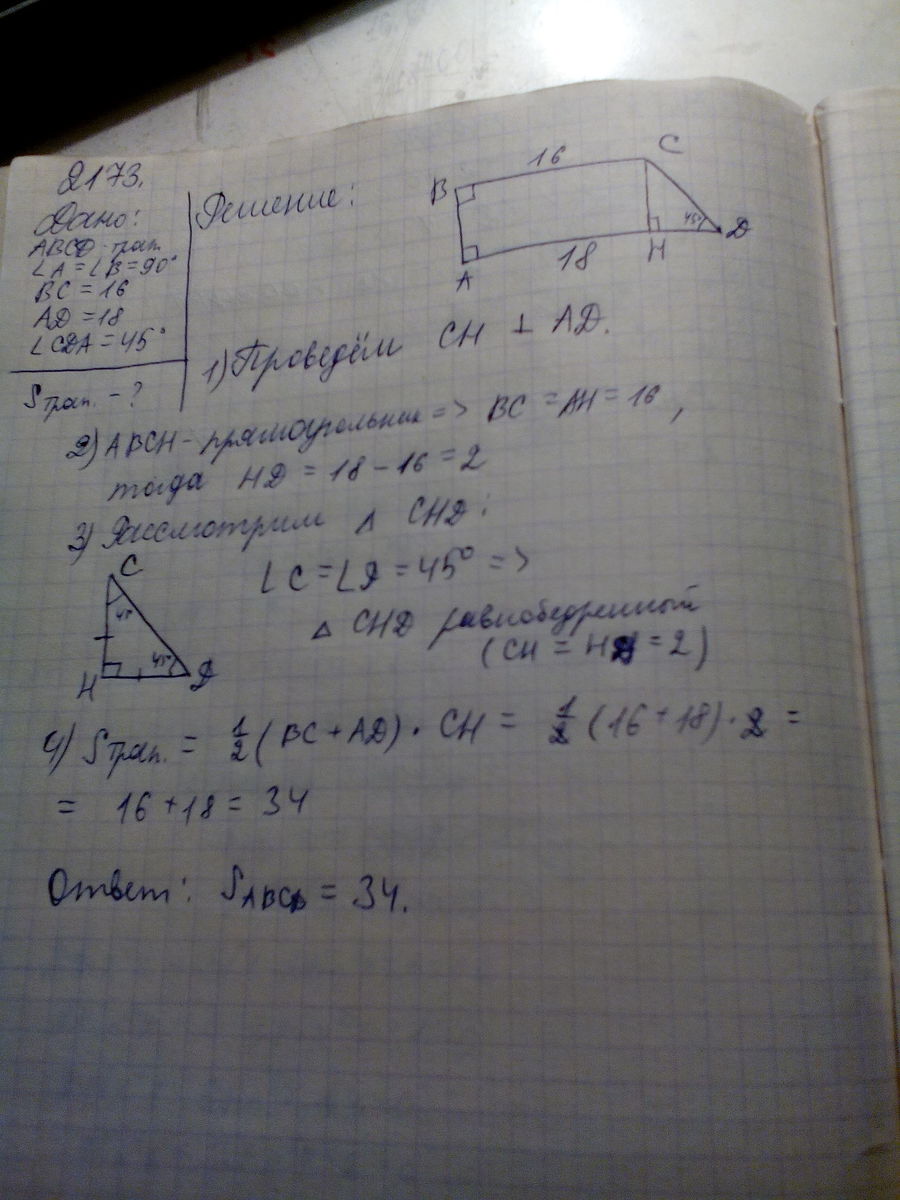 2173.
Дано:
ABCD-трап.
∠A = ∠B = 90°
BC = 16
AD = 18
∠CDA = 45°
Sтрап. - ?
Решение:
B 16 C
A 18 H 45° D
1) Проведём CH ⊥ AD.
2) ABCH - прямоугольник => BC = AH = 16,
тогда HD = 18 - 16 = 2
3) Рассмотрим △ CHD:
∠C = ∠D = 45° =>
△ CHD равнобедренный
(CH = HD = 2)
C
45°
H 45° D
4) Sтрап. = 1/2 (BC + AD) · CH = 1/2 (16 + 18) · 2 =
= 16 + 18 = 34
Ответ: SABCD = 34.